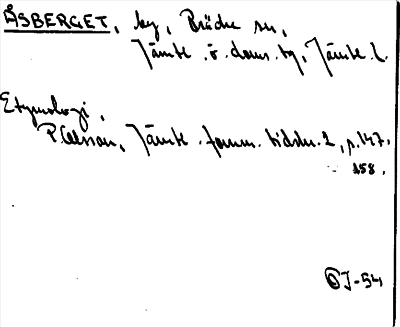 ÅSBERGET, by, Bräcke sn,
Jämtl. ö. doms. tg, Jämtl. l.
Etymologi,
P. Olsson, Jämtl. fornm. tidskr. 2, p. 147,
158.
J-54